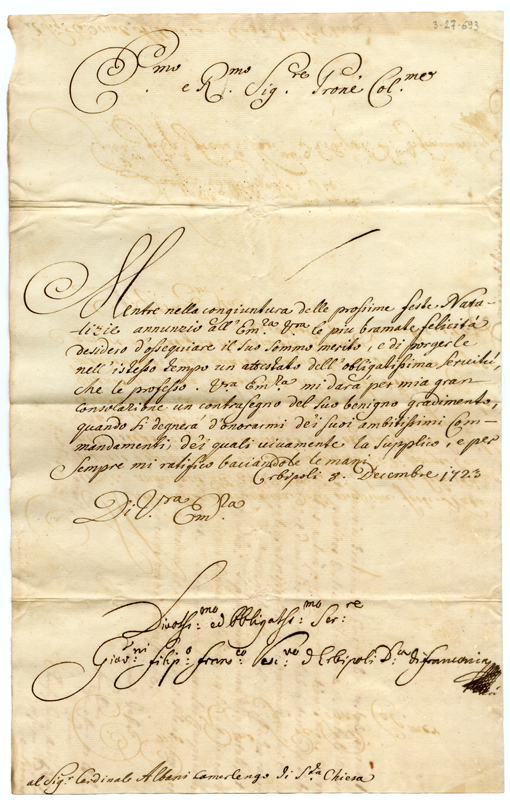 3-27-693
E.mo e R.mo Sig.re Prone Col.mo
Mentre nella congiuntura delle prossime feste Nata-
-lizie annunzio all'Em.za Vra le più bramate felicità
desidero d'ossequiare il suo sommo merito, e di porgerle
nell'istesso tempo un attestato dell'obligatissima servitù,
che le professo. Vra Em.za mi darà per mia gran
consolazione un contrasegno del suo benigno gradimento,
quando si degnerà d'onorarmi de'i suoi ambitissimi Com-
mandamenti, de'i quali vivamente la supplico, e per
sempre mi ratifico baciandole le mani
Erbipoli 8. Decembre 1723
Di V.ra Em.za
Divotiss:mo ed obbligatss:mo Ser:re
Giov:ni Filip:o Franc:co Vesc:vo d'Erbipoli D:ca di franconia
al Sig.r Cardinale Albani Camerlengo di S.ta Chiesa